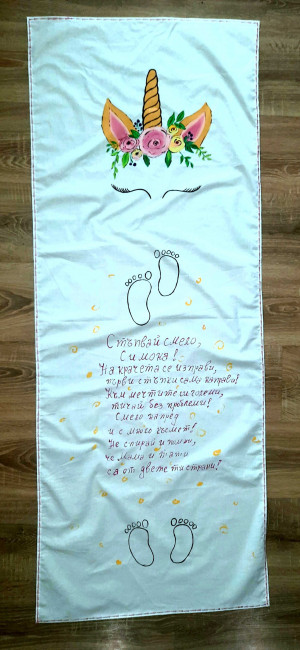 Стъпвай смело,
Симона!
На крачета се изправи,
първи стъпки сама направи!
Към мечтите си големи,
тичай без проблеми!
Смело напред
и с много късмет!
Не спирай и помни,
че мама и тати
са от двете ти страни!